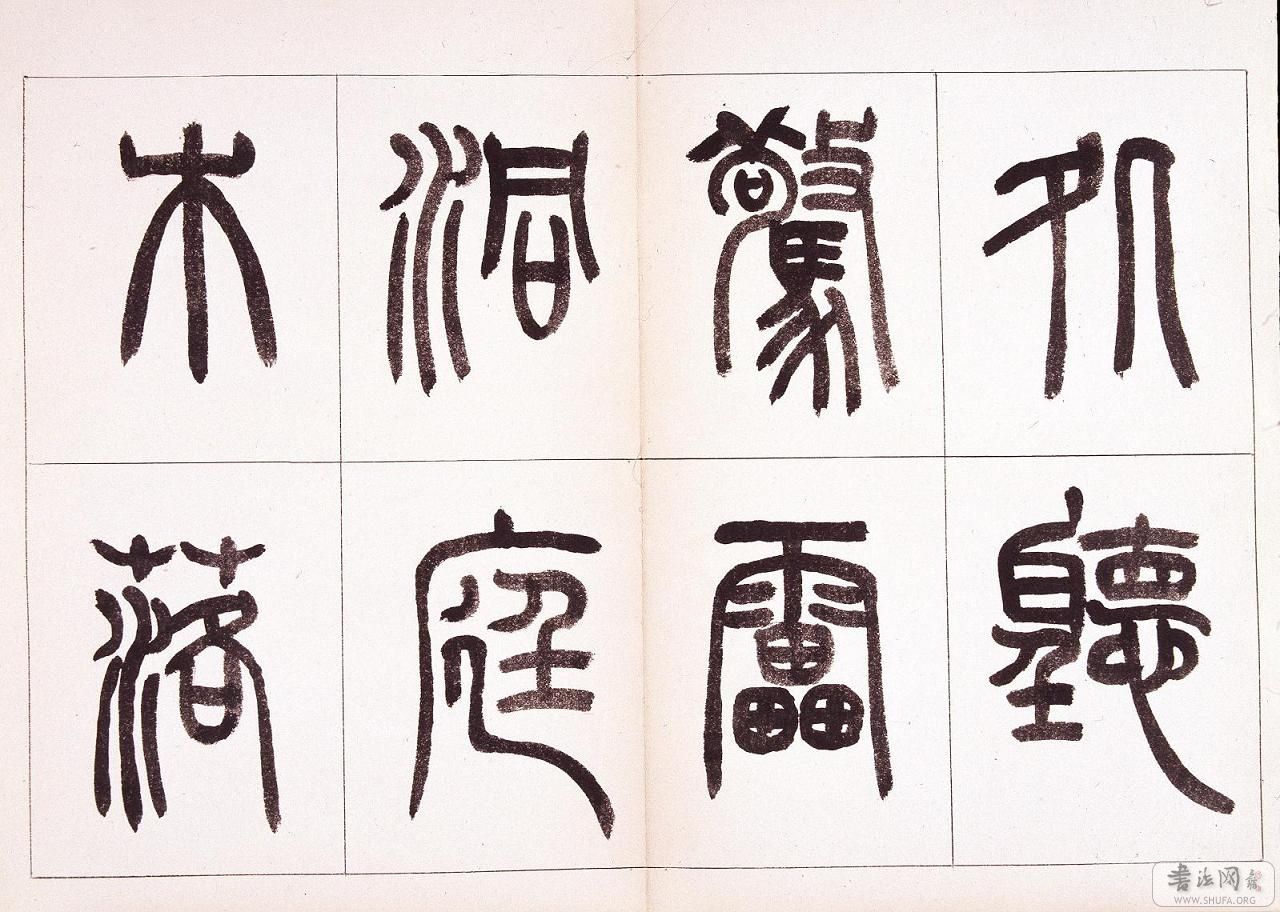 聽
驚雷
洞庭
木落
書法网
WWW.SHUFA.ORG